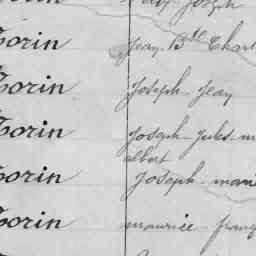 Joseph
Torin Jean Bte Charl
Torin Joseph Jean
Torin Joseph Jules m
albert
Torin Joseph marie
Torin maurice franç